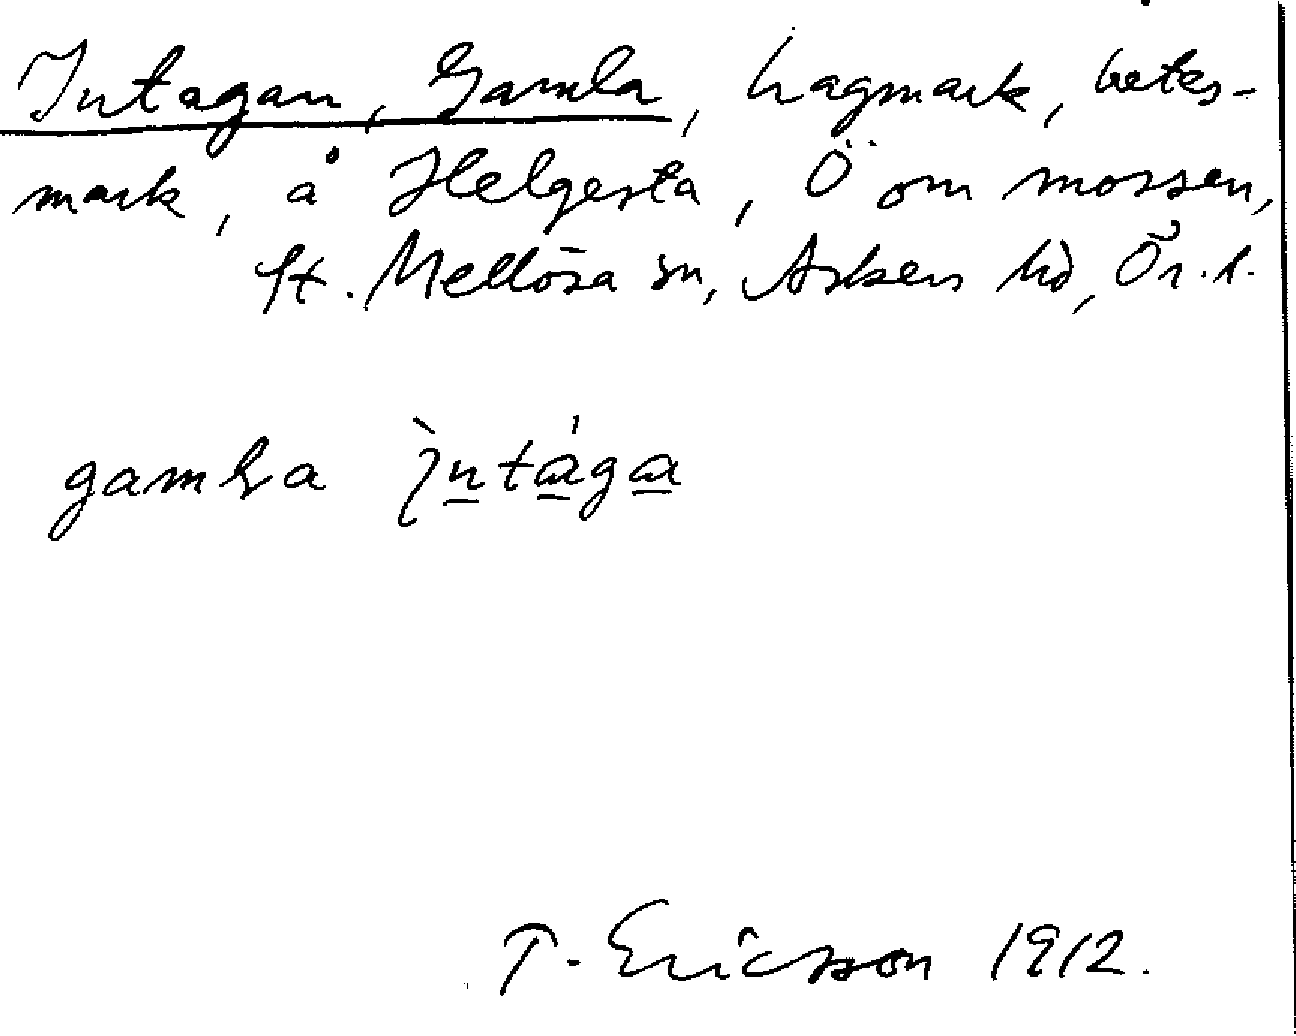 Intagan, Gamla, hagmark, betes-
mark, å Helgesta, Ö om mossen,
St. Mellösa sn, Askers hd, Ör. l.
gamła
T. Ericsson 1912.